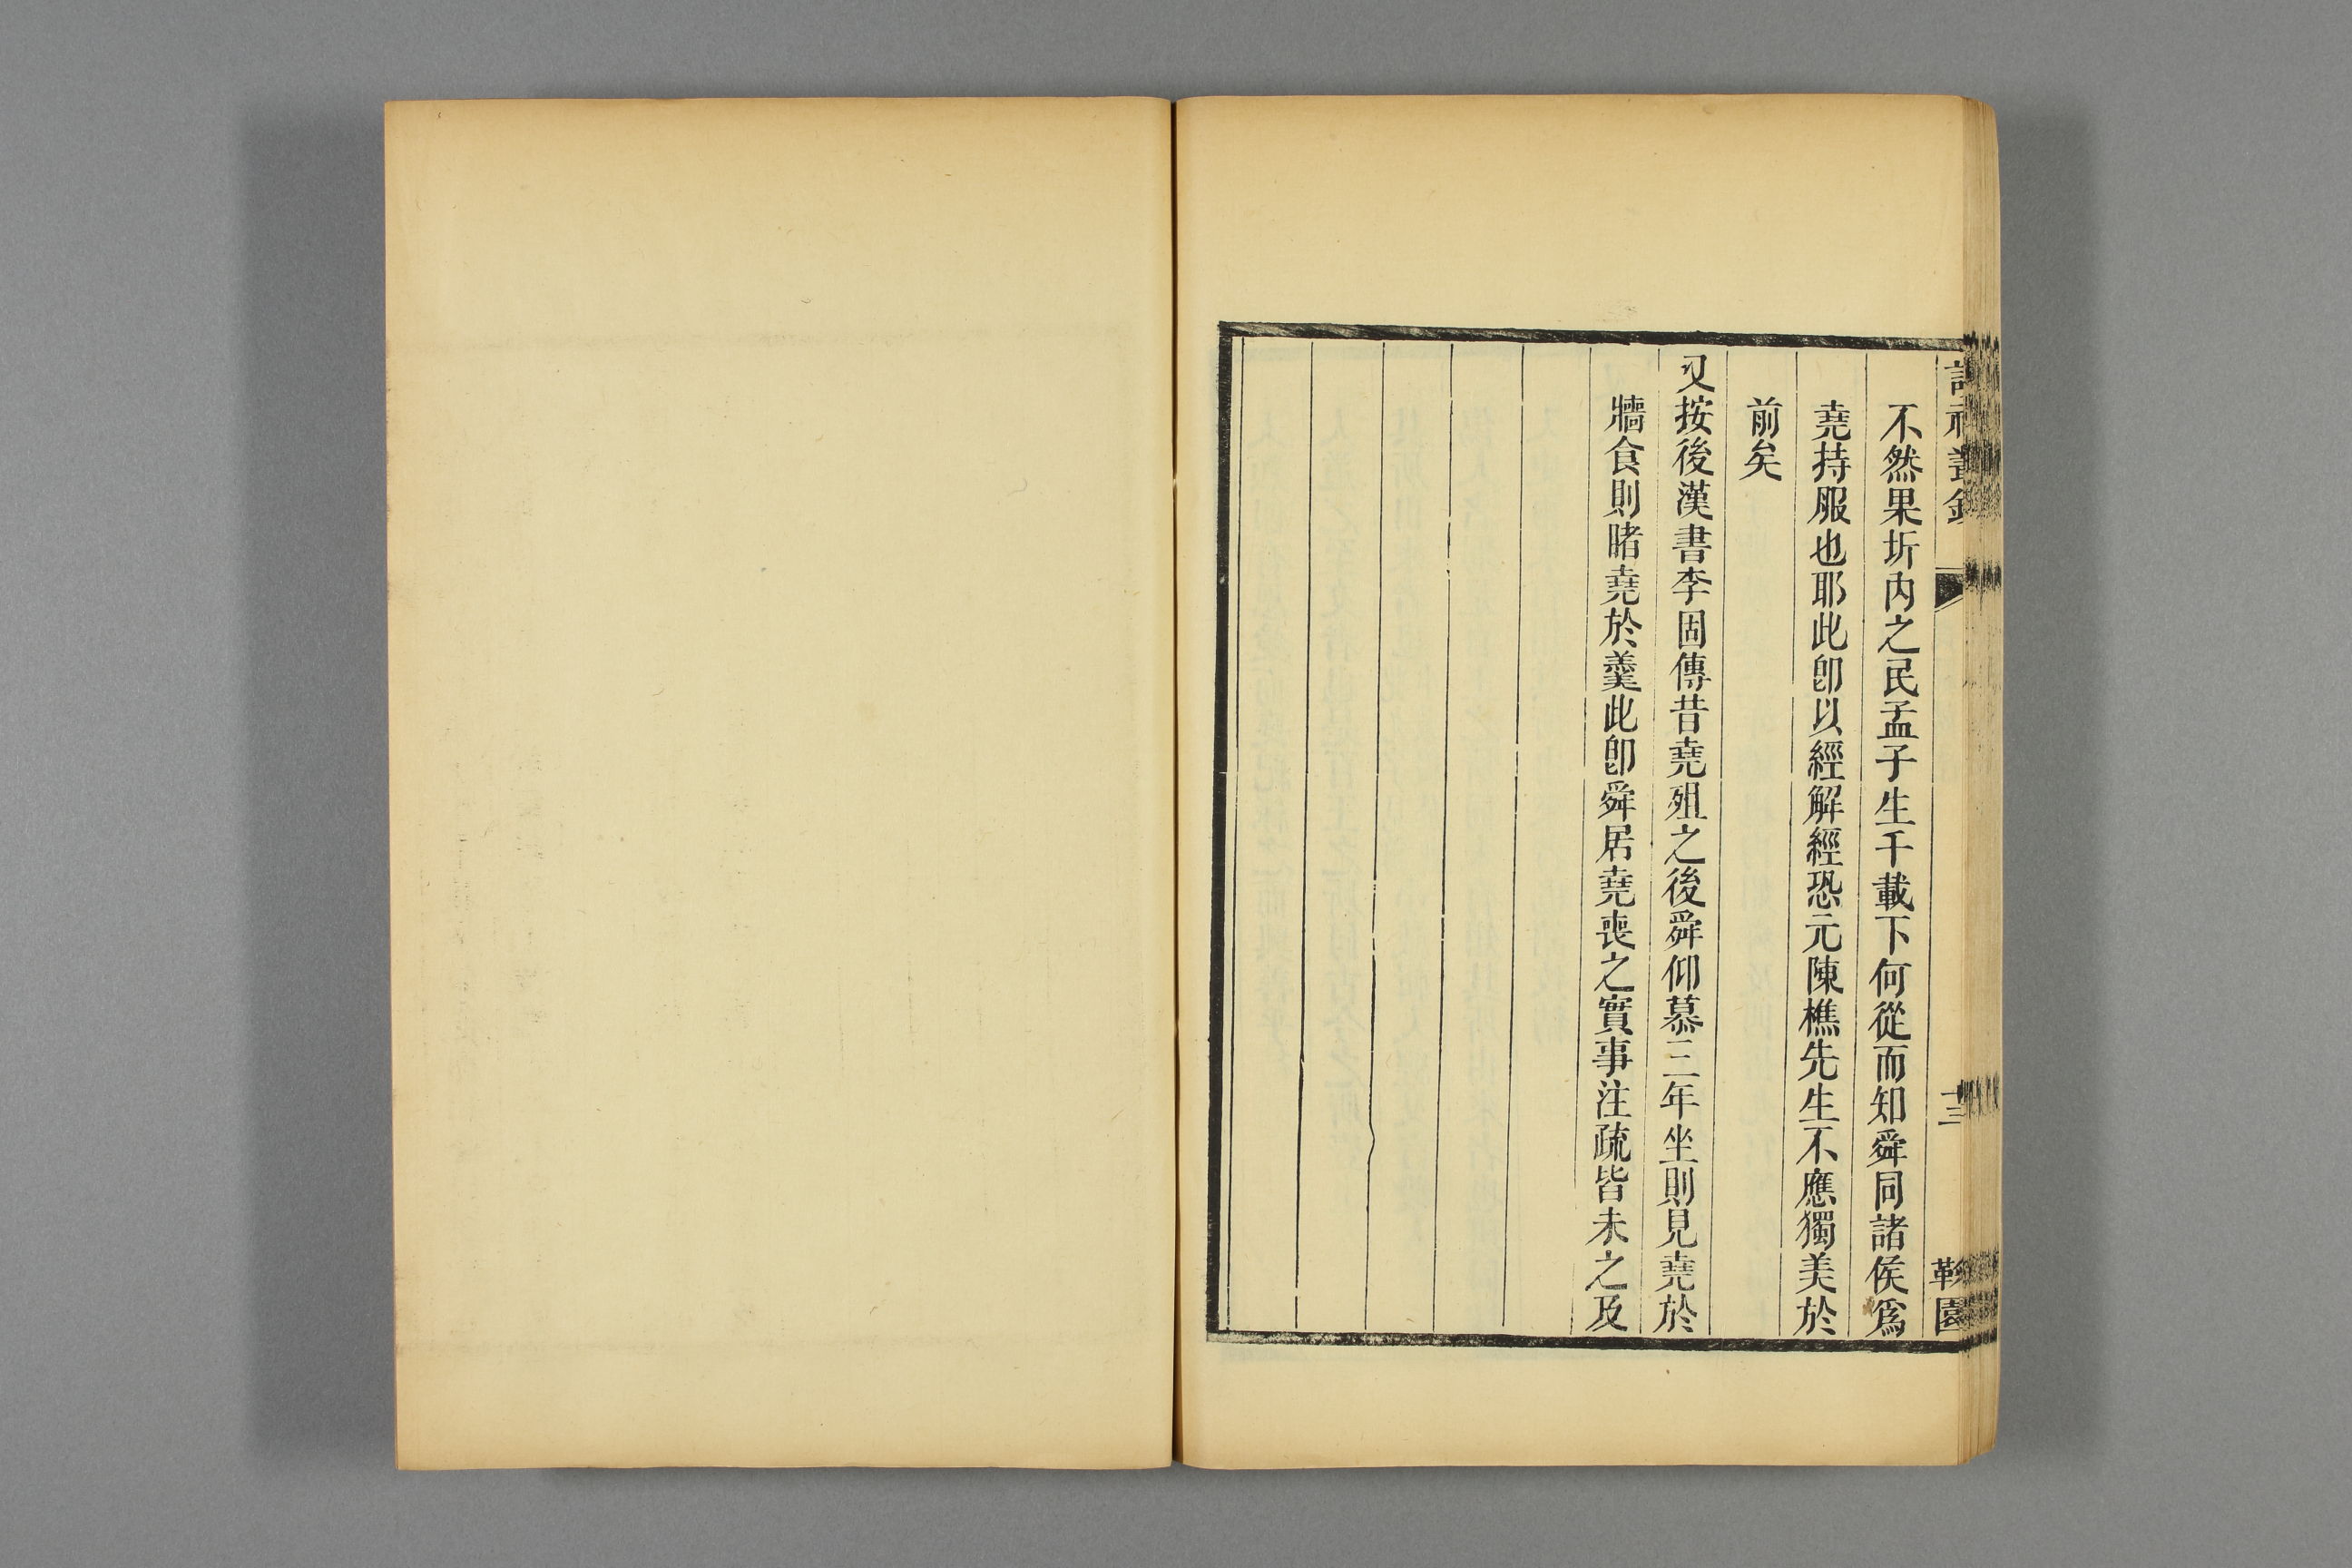 不然果圻内之民孟子生千載下何從而知舜同諸侯爲
堯持服也耶此卽以經解經恐元陳樵先生不應獨美於
前矣
又按後漢書李固傳昔堯殂之後舜仰慕三年坐則見堯於
牆食則睹堯於羹此卽舜居堯喪之實事注疏皆未之及
十三
園